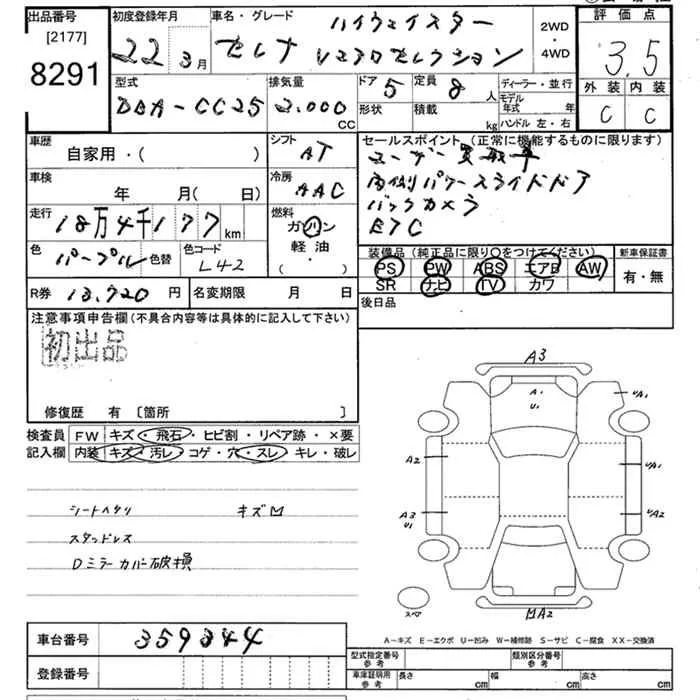 出品番号
[2177]
8291
初度登録年月
22 3月
車名・グレード
ハイウェイスター
セレナ Vエアロセレクション
2WD
・
4WD
評価点
3.5
型式
DBA-CC25
排気量
2.000
CC
ドア 5
定員 8人
形状
積載
kg
ディーラー・並行
モデル年式 年
ハンドル 左・右
外装 内装
C C
車歴
自家用・( )
シフト
AT
セールスポイント (正常に機能するものに限ります)
ユーザー買取車
両側パワースライドドア
バックカメラ
ETC
車検
年 月( 日)
冷房
AAC
走行
18万4千177 km
燃料
ガソリン
軽油
・( )
色
パープル
色替
色コード
L42
装備品 (純正品に限り○をつけてください)
新車保証書
PS PW ABS エアB AW
SR ナビ TV カワ
有・無
R券 13.720 円
名変期限 月 日
後日品
注意事項申告欄 (不具合内容等は具体的に記入して下さい)
初出品
修復歴 有 [箇所 ]
検査員
記入欄
FW キズ・飛石・ヒビ割・リペア跡・×要
内装 キズ・汚レ・コゲ・穴・スレ・キレ・破レ
シートヘタリ キズM
スタッドレス
Dミラーカバー破損
A3
A1
U1
A1
A2
A3
U1
UA1
UA2
スペア
MA2
A-キズ E-エクボ U-凹み W-補修跡 S-サビ C-腐食 XX-交換済
車台番号 359344
登録番号
型式指定番号
参考
類別区分番号
参考
車庫証明用
参考
長さ cm
幅 cm
高さ cm